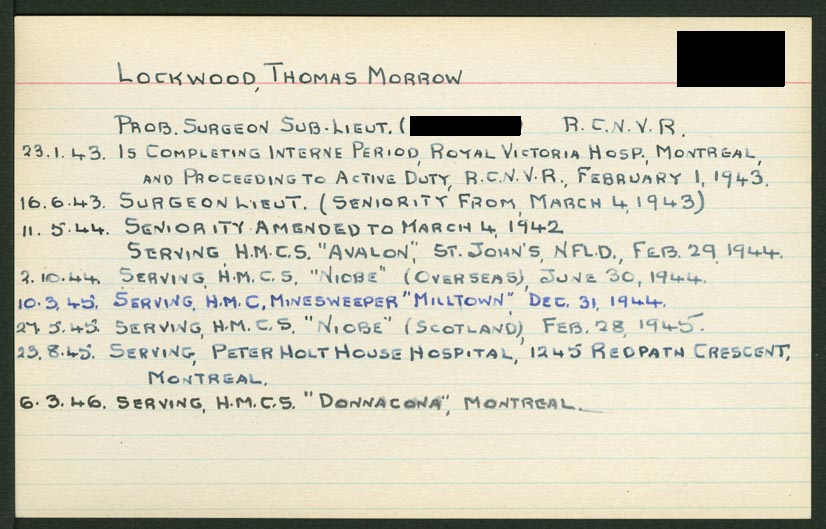 LOCKWOOD, THOMAS MORROW
PROB. SURGEON SUB-LIEUT. ( ) R.C.N.V.R.
23.1.43. IS COMPLETING INTERNE PERIOD, ROYAL VICTORIA HOSP., MONTREAL,
AND PROCEEDING TO ACTIVE DUTY, R.C.N.V.R., FEBRUARY 1, 1943.
16.6.43. SURGEON LIEUT. (SENIORITY FROM MARCH 4, 1943)
11.5.44. SENIORITY AMENDED TO MARCH 4, 1942
SERVING, H.M.C.S. "AVALON", ST. JOHN'S, NFLD., FEB. 29, 1944.
2.10.44. SERVING, H.M.C.S. "NIOBE" (OVERSEAS), JUNE 30, 1944.
10.3.45. SERVING, H.M.C. MINESWEEPER "MILLTOWN", DEC. 31, 1944.
27.5.45. SERVING, H.M.C.S. "NIOBE" (SCOTLAND), FEB. 28, 1945.
23.8.45. SERVING, PETER HOLT HOUSE HOSPITAL, 1245 REDPATH CRESCENT,
MONTREAL.
6.3.46. SERVING, H.M.C.S. "DONNACONA", MONTREAL.